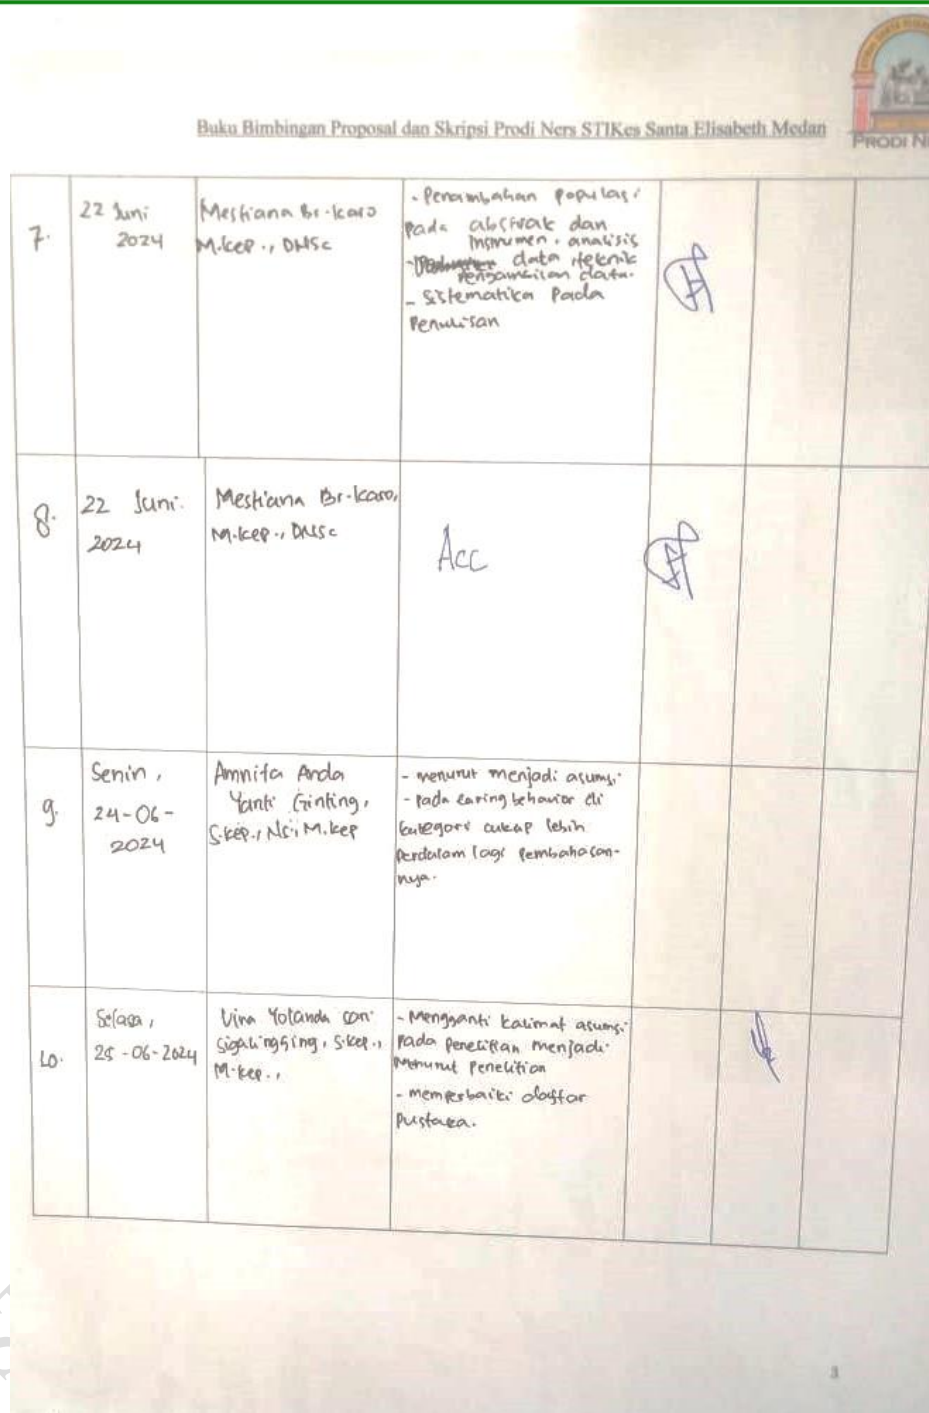 Buku Bimbingan Proposal dan Skripsi Prodi Ners STIKes Santa Elisabeth Medan
PRODI N
7.
22 Juni
2024
Mestiana Br. Karo
M.Kep., DNSc
- Penambahan Populasi
pada abstrak dan
Instrumen. analisis
- data, teknik
Pengambilan data.
- Sistematika Pada
Penulisan
8.
22 Juni.
2024
Mestiana Br. Karo,
M.Kep., DNSc
Acc
9.
Senin,
24-06-
2024
Amnita Anda
Yanti Ginting,
S.Kep., Ns., M.Kep
- menurut menjadi asumsi
- pada caring behavior di
kategori cukap lebih
perdalam lagi pembahasan-
nya.
10.
Selasa,
25-06-2024
Vina Yolanda Sari
Sigalingging, S.Kep.,
M.Kep.,
- Mengganti kalimat asumsi
pada penelitian menjadi
Menurut Penelitian
- memperbaiki daftar
Pustaka.
3